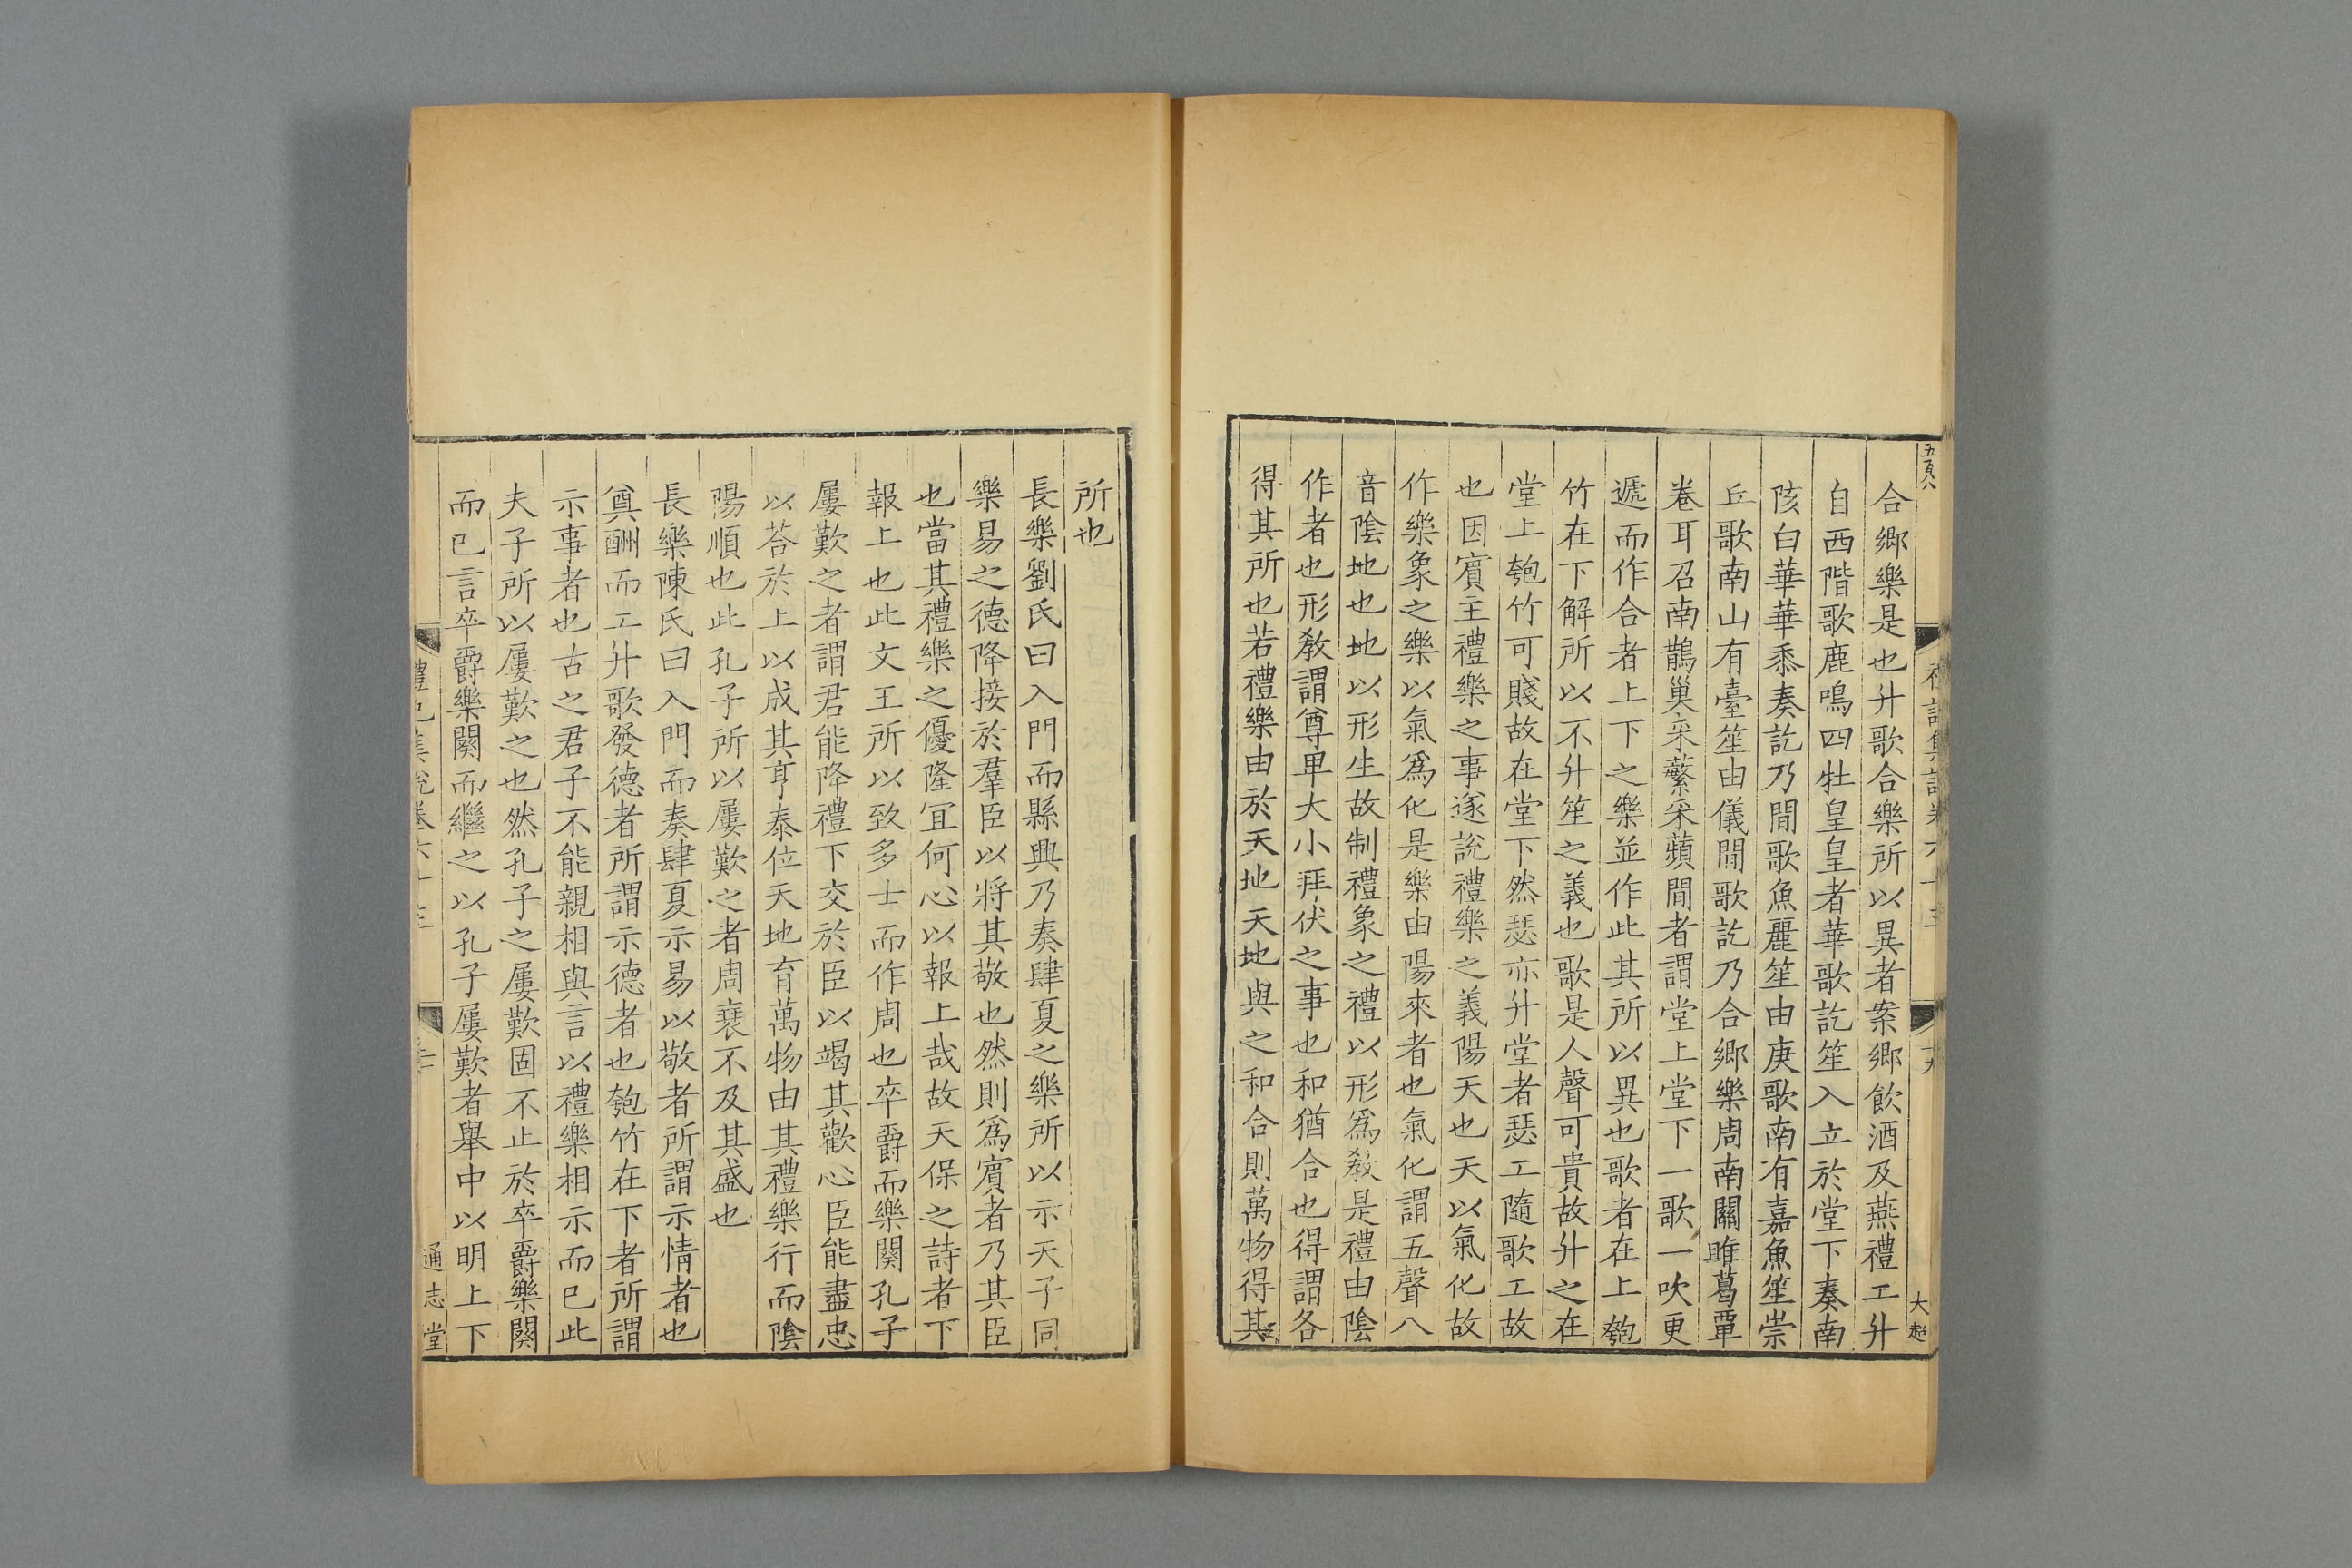 合鄉樂是也升歌合樂所以異者案鄉飲酒及燕禮工升
自西階歌鹿鳴四牡皇皇者華歌訖笙入立於堂下奏南
陔白華華黍奏訖乃間歌魚麗笙由庚歌南有嘉魚笙崇
丘歌南山有臺笙由儀間歌訖乃合鄉樂周南關雎葛覃
卷耳召南鵲巢采蘩采蘋間者謂堂上堂下一歌一吹更
遞而作合者上下之樂並作此其所以異也歌者在上匏
竹在下解所以不升笙之義也歌是人聲可貴故升之在
堂上匏竹可賤故在堂下然瑟亦升堂者瑟工隨歌工故
也因賓主禮樂之事遂說禮樂之義陽天也天以氣化故
作樂象之樂以氣爲化是樂由陽來者也氣化謂五聲八
音陰地也地以形生故制禮象之禮以形爲敎是禮由陰
作者也形敎謂尊卑大小拜伏之事也和猶合也得謂各
得其所也若禮樂由於天地天地與之和合則萬物得其
大超
所也
長樂劉氏曰入門而縣興乃奏肆夏之樂所以示天子同
樂易之德降接於羣臣以將其敬也然則爲賓者乃其臣
也當其禮樂之優隆宜何心以報上哉故天保之詩者下
報上也此文王所以致多士而作周也卒爵而樂闋孔子
屢歎之者謂君能降禮下交於臣以竭其歡心臣能盡忠
以荅於上以成其亨泰位天地育萬物由其禮樂行而陰
陽順也此孔子所以屢歎之者周衰不及其盛也
長樂陳氏曰入門而奏肆夏示易以敬者所謂示情者也
奠酬而工升歌發德者所謂示德者也匏竹在下者所謂
示事者也古之君子不能親相與言以禮樂相示而已此
夫子所以屢歎之也然孔子之屢歎固不止於卒爵樂闋
而已言卒爵樂闋而繼之以孔子屢歎者舉中以明上下
通志堂